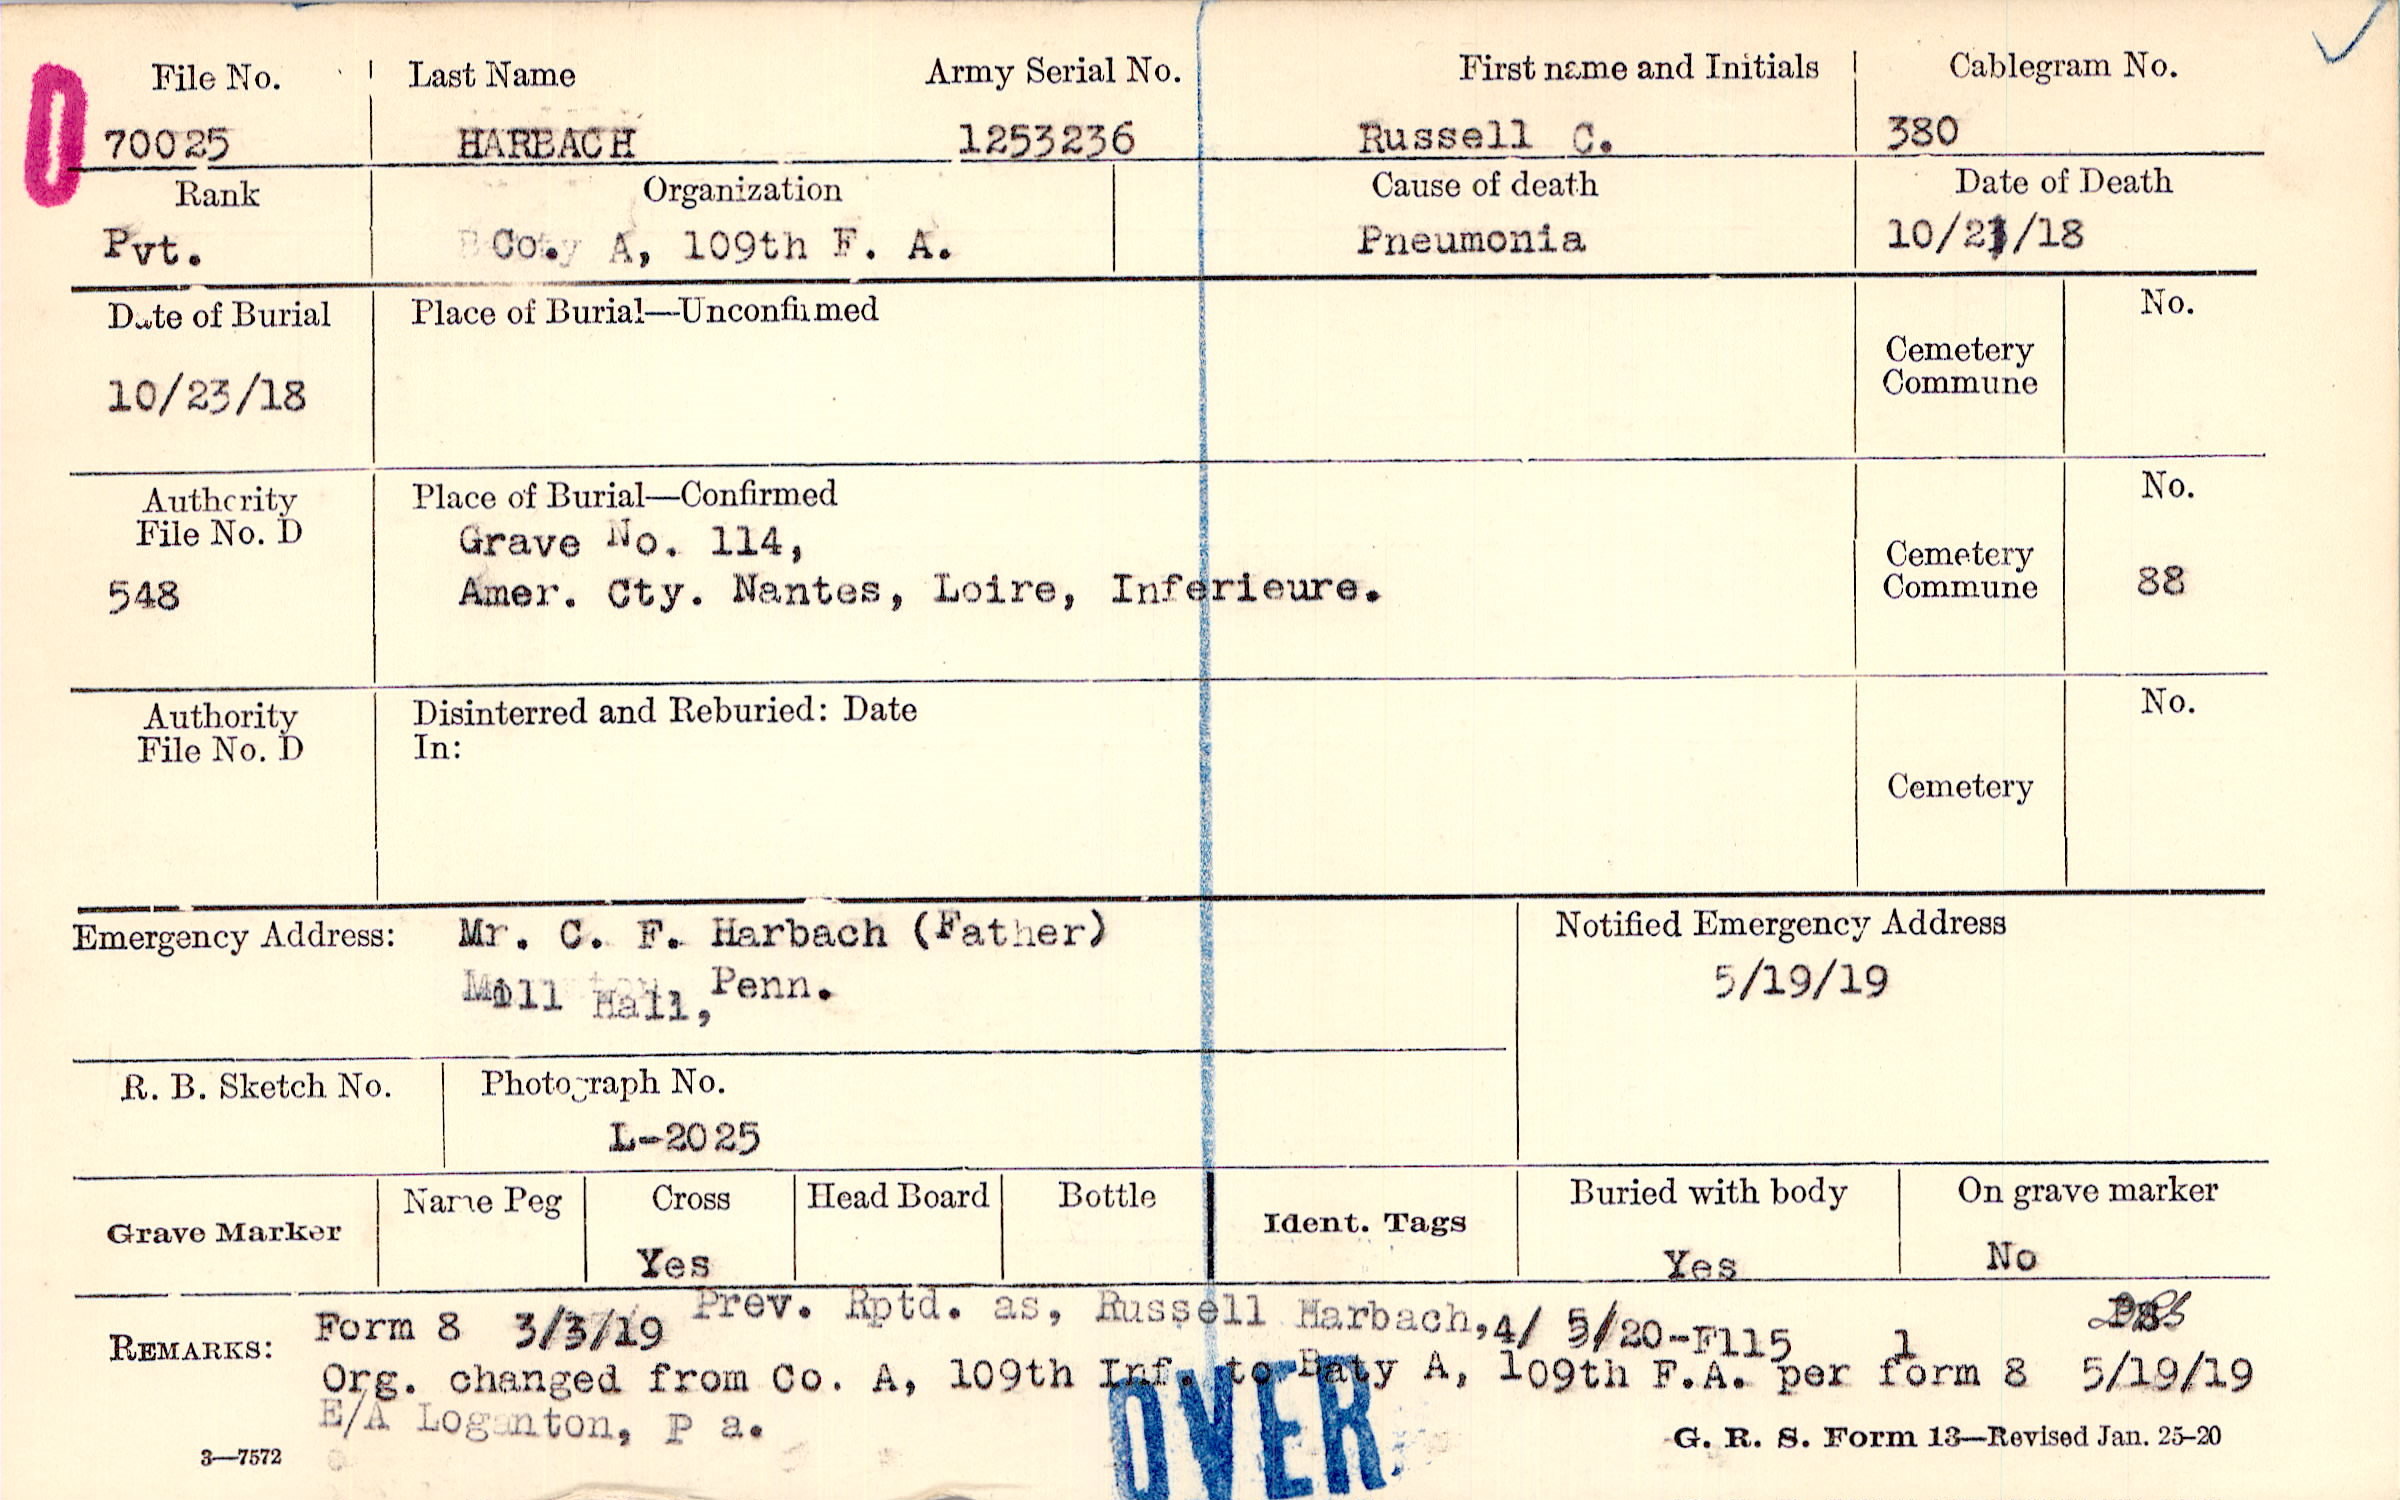 File No. Last Name Army Serial No. First name and Initials Cablegram No.
70025 HARBACH 1253236 Russell C. 380
Rank Organization Cause of death Date of Death
Pvt. Co. A, 109th F. A. Pneumonia 10/21/18
Date of Burial Place of Burial—Unconfirmed No.
Cemetery
Commune
10/23/18
Authority Place of Burial—Confirmed No.
File No. D Grave No. 114, Cemetery
548 Amer. Cty. Nantes, Loire, Inferieure. Commune 88
Authority Disinterred and Reburied: Date No.
File No. D In:
Cemetery
Emergency Address: Mr. C. F. Harbach (Father) Notified Emergency Address
Mill Hall, Penn. 5/19/19
R. B. Sketch No. Photograph No.
L-2025
Grave Marker Name Peg Cross Head Board Bottle Ident. Tags Buried with body On grave marker
Yes Yes No
REMARKS: Form 8 3/3/19 Prev. Rptd. as, Russell Harbach, 4/ 5/20-F115 1
Org. changed from Co. A, 109th Inf. to Baty A, 109th F.A. per form 8 5/19/19
E/A Loganton, P a.
OVER
3—7572 G. R. S. Form 13—Revised Jan. 25-20